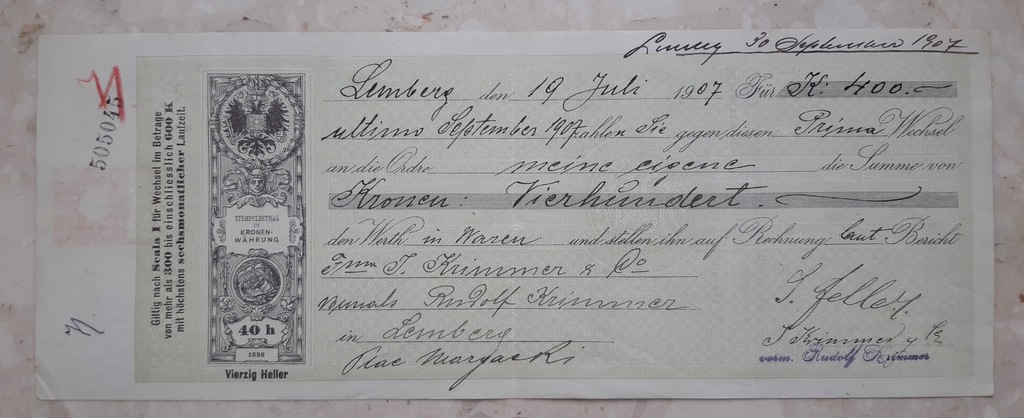 30 September 1907
Lemberg den 19 Juli 1907 Für K: 400.-
ultimo September 1907 zahlen Sie gegen diesen Prima Wechsel
an die Ordre meine eigene die Summe von
Kronen: Vierhundert.
den Werth in Waren und stellen ihn auf Rechnung laut Bericht
J. Krimmer & Co
Rudolf Krimmer
in Lemberg
Plac Maryacki
J Krimmer & Co
vorm. Rudolf Krimmer
505045
N.
Giltig nach Scala I für Wechsel im Betrage
von mehr als 300 bis einschliesslich 600 K
mit höchstens sechsmonatlicher Laufzeit.
STEMPELBETRAG
IN
KRONEN-
WÄHRUNG
40 h
1898
Vierzig Heller